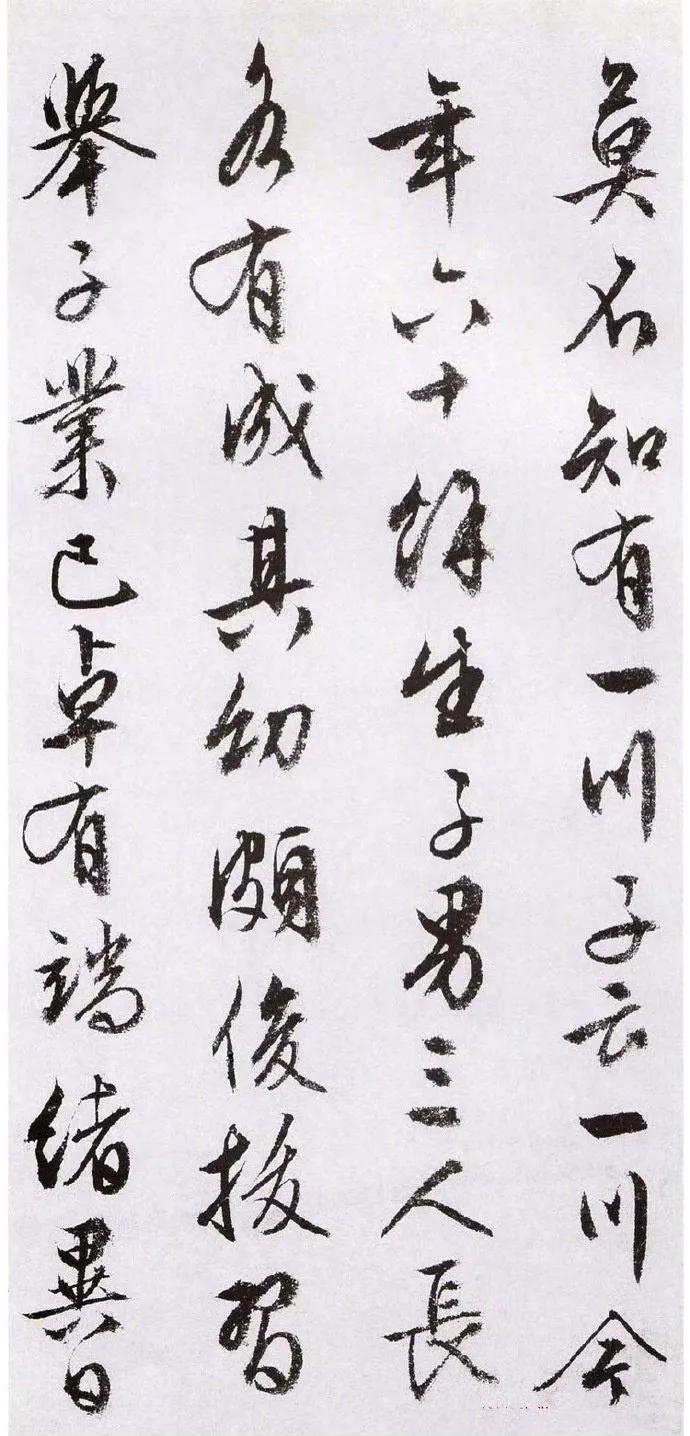 莫不知有一川子云一川今
年六十餘生子男三人長
名有成其幼頗俊拔習
舉子業已卓有端緒異日